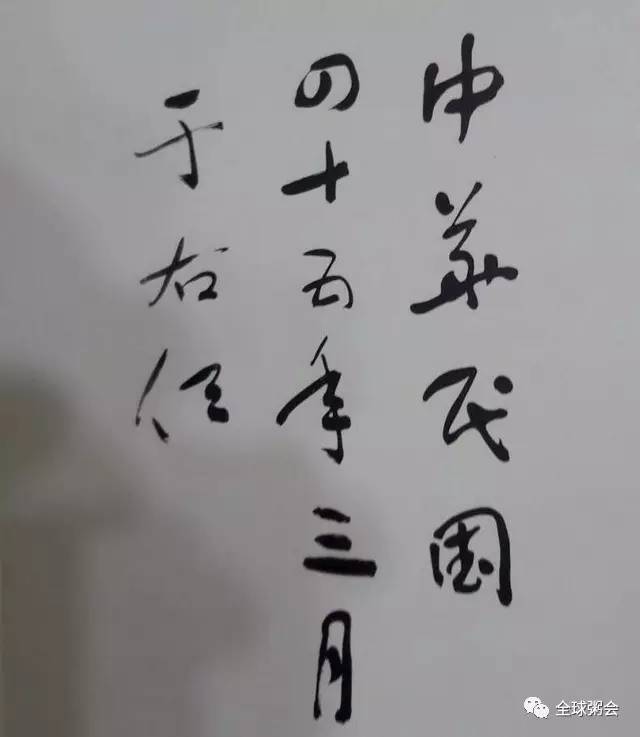 中華民国
四十五年三月
于右任
全球粥会